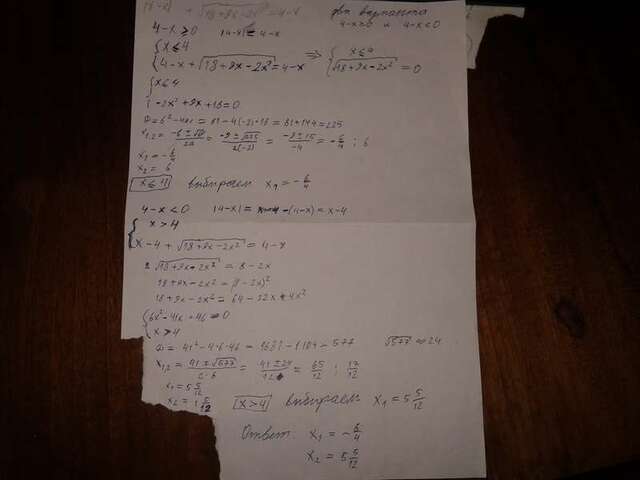 |4-x| + √(18+9x-2x²) = 4-x
два варианта
4-x≥0 и 4-x<0
4-x≥0 |4-x| = 4-x
{ x≤4
4-x + √(18+9x-2x²) = 4-x ⇒ { x≤4
√(18+9x-2x²) = 0
{ x≤4
-2x² + 9x + 18 = 0
D = b²-4ac = 81-4(-2)·18 = 81+144 = 225
x₁,₂ = (-b±√D)/2a = (-9±√225)/2(-2) = (-9±15)/-4 = -6/4 ; 6
x₁ = -6/4
x₂ = 6
x≤4 выбираем x₁ = -6/4
4-x<0 |4-x| = -(4-x) = x-4
{ x>4
x-4 + √(18+9x-2x²) = 4-x
√(18+9x-2x²) = 8-2x
18+9x-2x² = (8-2x)²
18+9x-2x² = 64-32x+4x²
{ 6x²-41x+46=0
x>4
D = 41²-4·6·46 = 1681-1104 = 577 √577 ≈ 24
x₁,₂ = (41±√577)/2·6 = (41±24)/12 = 65/12 ; 17/12
x₁ = 5 5/12
x₂ = 1 5/12 x>4 выбираем x₁ = 5 5/12
Ответ: x₁ = -6/4
x₂ = 5 5/12